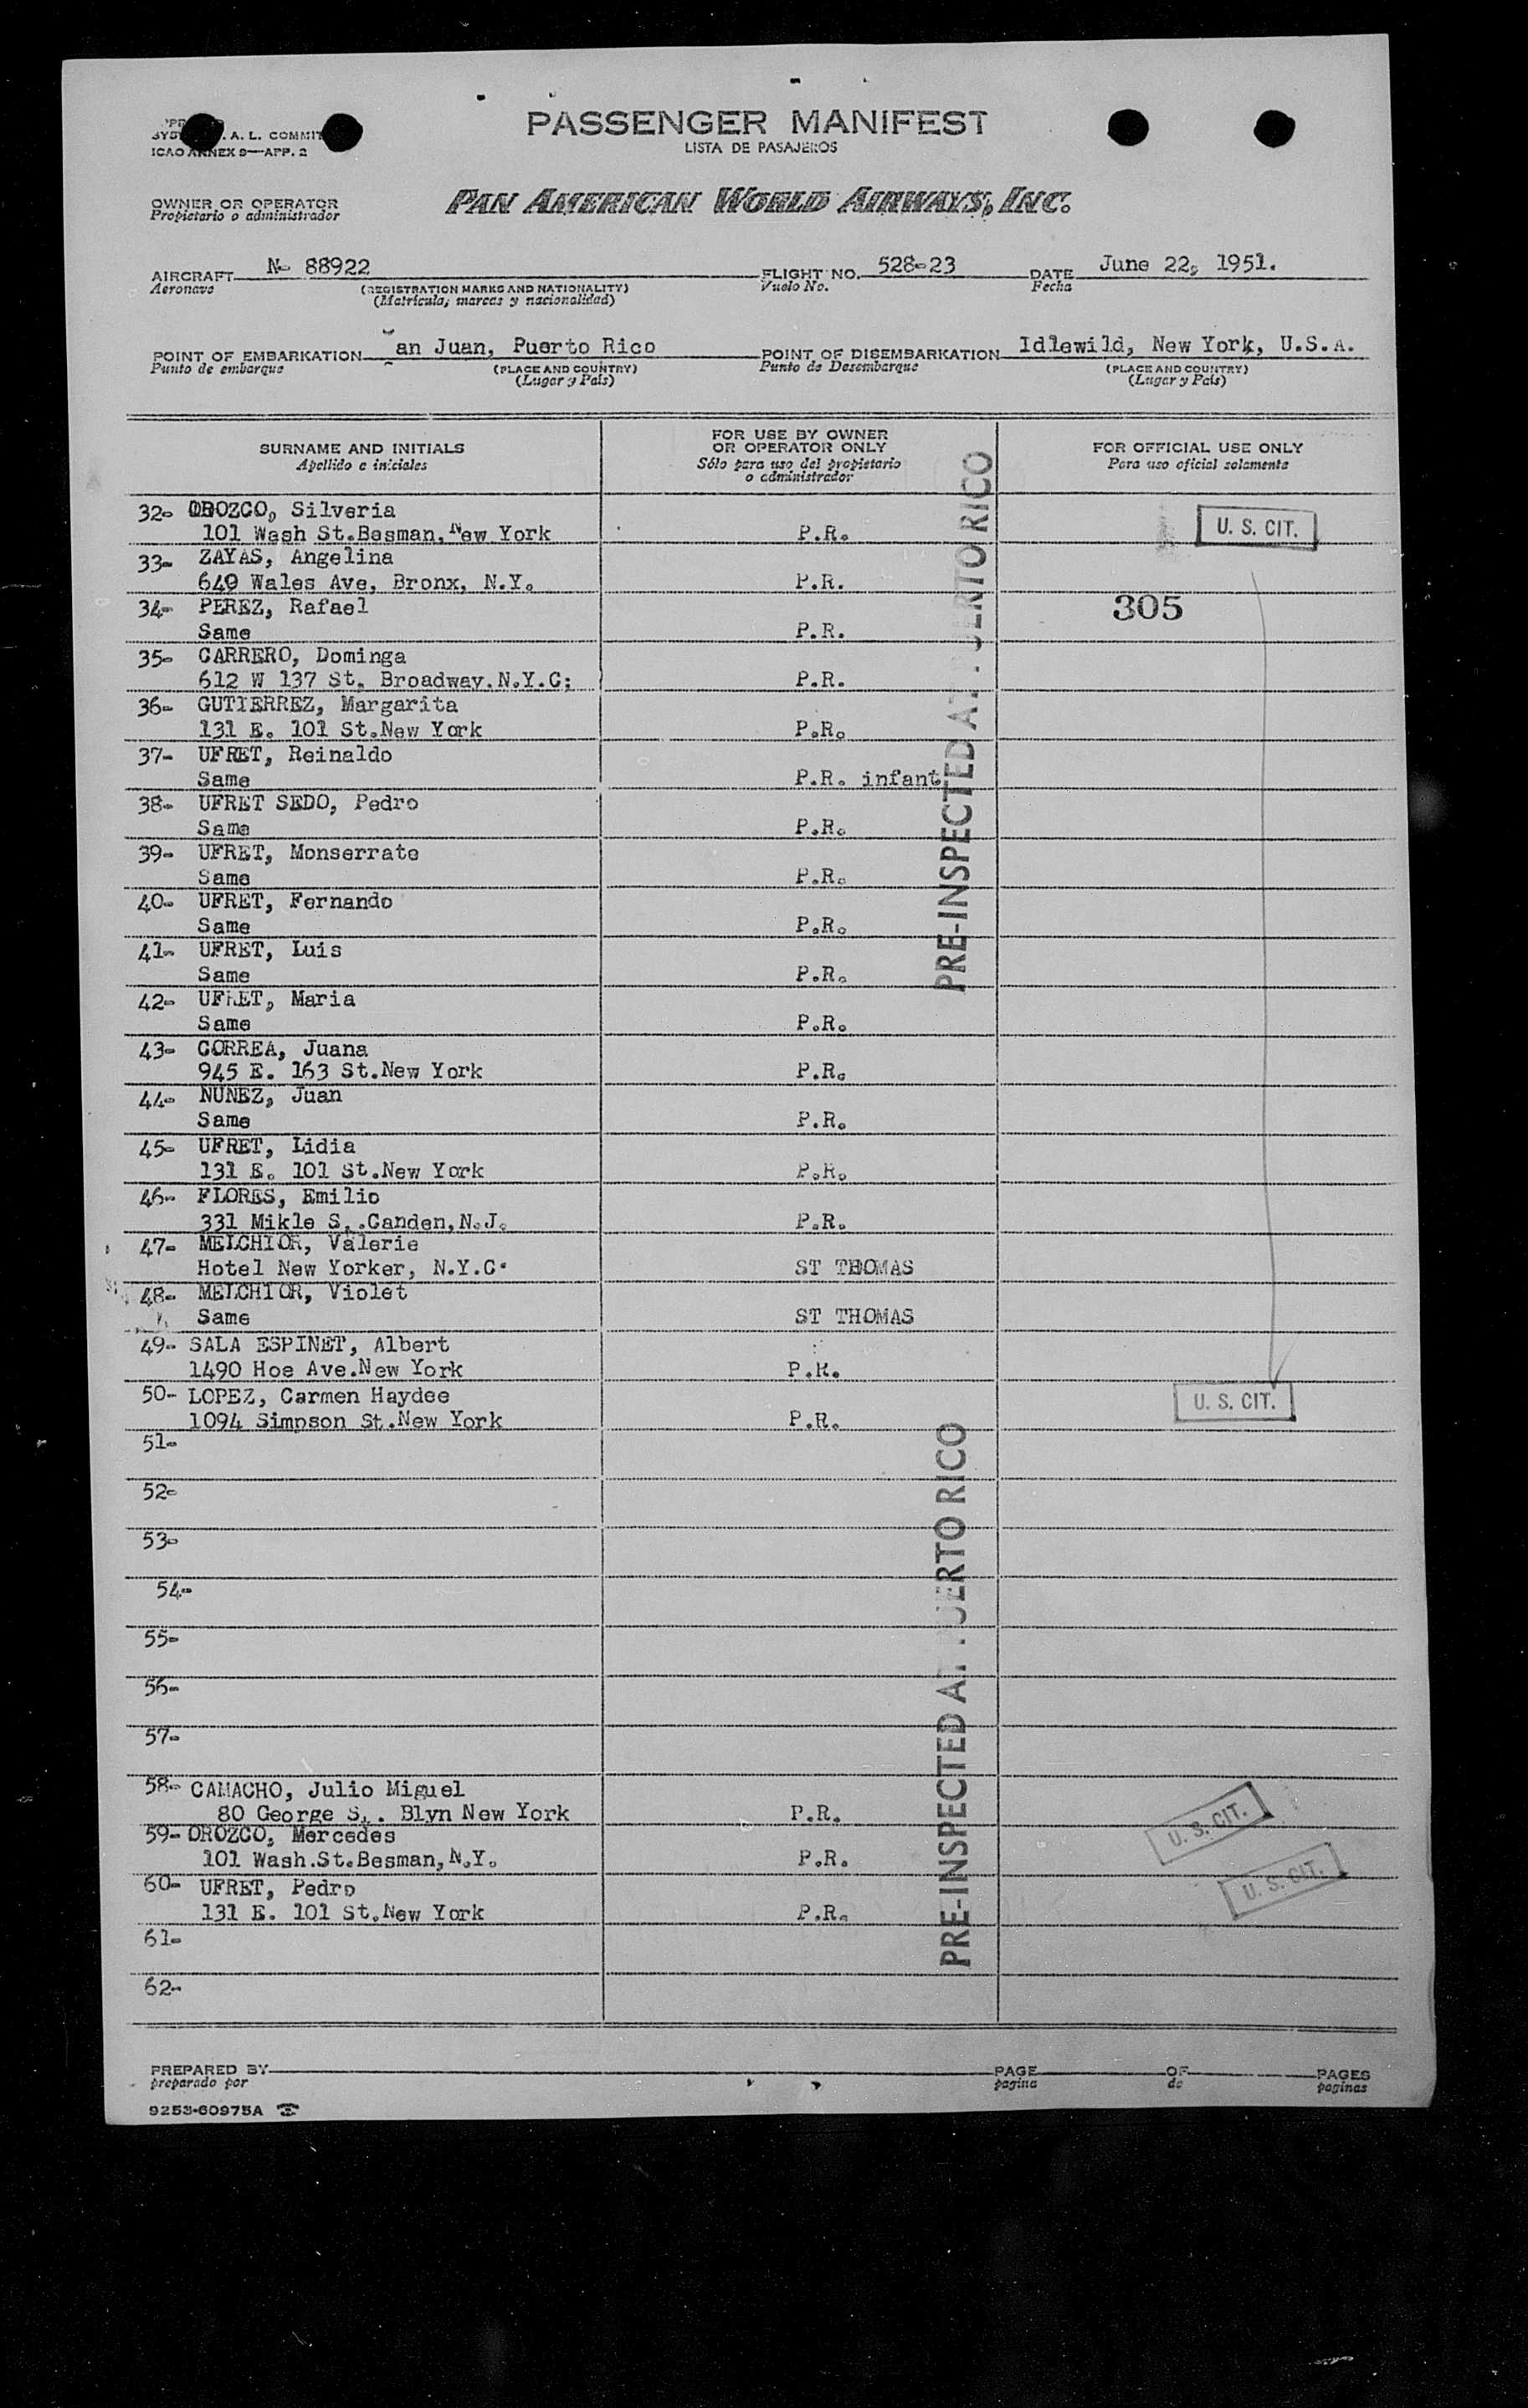 A. L. COMMIT
ICAO ANNEX 9—APP. 2
PASSENGER MANIFEST
LISTA DE PASAJEROS
OWNER OR OPERATOR
Propietario o administrador
PAN AMERICAN WORLD AIRWAYS, INC.
AIRCRAFT N- 88922 FLIGHT NO. 528-23 DATE June 22, 1951.
Aeronave (REGISTRATION MARKS AND NATIONALITY) Vuelo No. Fecha
(Matrícula, marcas y nacionalidad)
POINT OF EMBARKATION an Juan, Puerto Rico POINT OF DISEMBARKATION Idlewild, New York, U.S.A.
Punto de embarque (PLACE AND COUNTRY) Punto de Desembarque (PLACE AND COUNTRY)
(Lugar y País) (Lugar y País)
SURNAME AND INITIALS
Apellido e iniciales
FOR USE BY OWNER
OR OPERATOR ONLY
Sólo para uso del propietario
o administrador
FOR OFFICIAL USE ONLY
Para uso oficial solamente
32- OROZCO, Silveria
101 Wash St.Besman, New York P.R. U. S. CIT.
33- ZAYAS, Angelina
649 Wales Ave, Bronx, N.Y. P.R.
34- PEREZ, Rafael 305
Same P.R.
35- CARRERO, Dominga
612 W 137 St. Broadway.N.Y.C: P.R.
36- GUTIERREZ, Margarita
131 E. 101 St.New York P.R.
37- UFRET, Reinaldo
Same P.R. infant
38- UFRET SEDO, Pedro
Same P.R.
39- UFRET, Monserrate
Same P.R.
40- UFRET, Fernando
Same P.R.
41- UFRET, Luis
Same P.R.
42- UFRET, Maria
Same P.R.
43- CORREA, Juana
945 E. 163 St.New York P.R.
44- NUNEZ, Juan
Same P.R.
45- UFRET, Lidia
131 E. 101 St.New York P.R.
46- FLORES, Emilio
331 Mikle S,.Canden,N.J. P.R.
47- MELCHIOR, Valerie
Hotel New Yorker, N.Y.C. ST THOMAS
48- MELCHIOR, Violet
Same ST THOMAS
49- SALA ESPINET, Albert
1490 Hoe Ave.New York P.R.
50- LOPEZ, Carmen Haydee
1094 Simpson St.New York P.R. U. S. CIT.
51-
52-
53-
54-
55-
56-
57-
58- CAMACHO, Julio Miguel
80 George S,. Blyn New York P.R. U. S. CIT.
59- OROZCO, Mercedes
101 Wash.St.Besman, N.Y. P.R.
60- UFRET, Pedro U. S. CIT.
131 E. 101 St.New York P.R.
61-
62-
PRE-INSPECTED AT PUERTO RICO
PRE-INSPECTED AT PUERTO RICO
PREPARED BY PAGE OF PAGES
preparado por pagina de paginas
9253-60975A